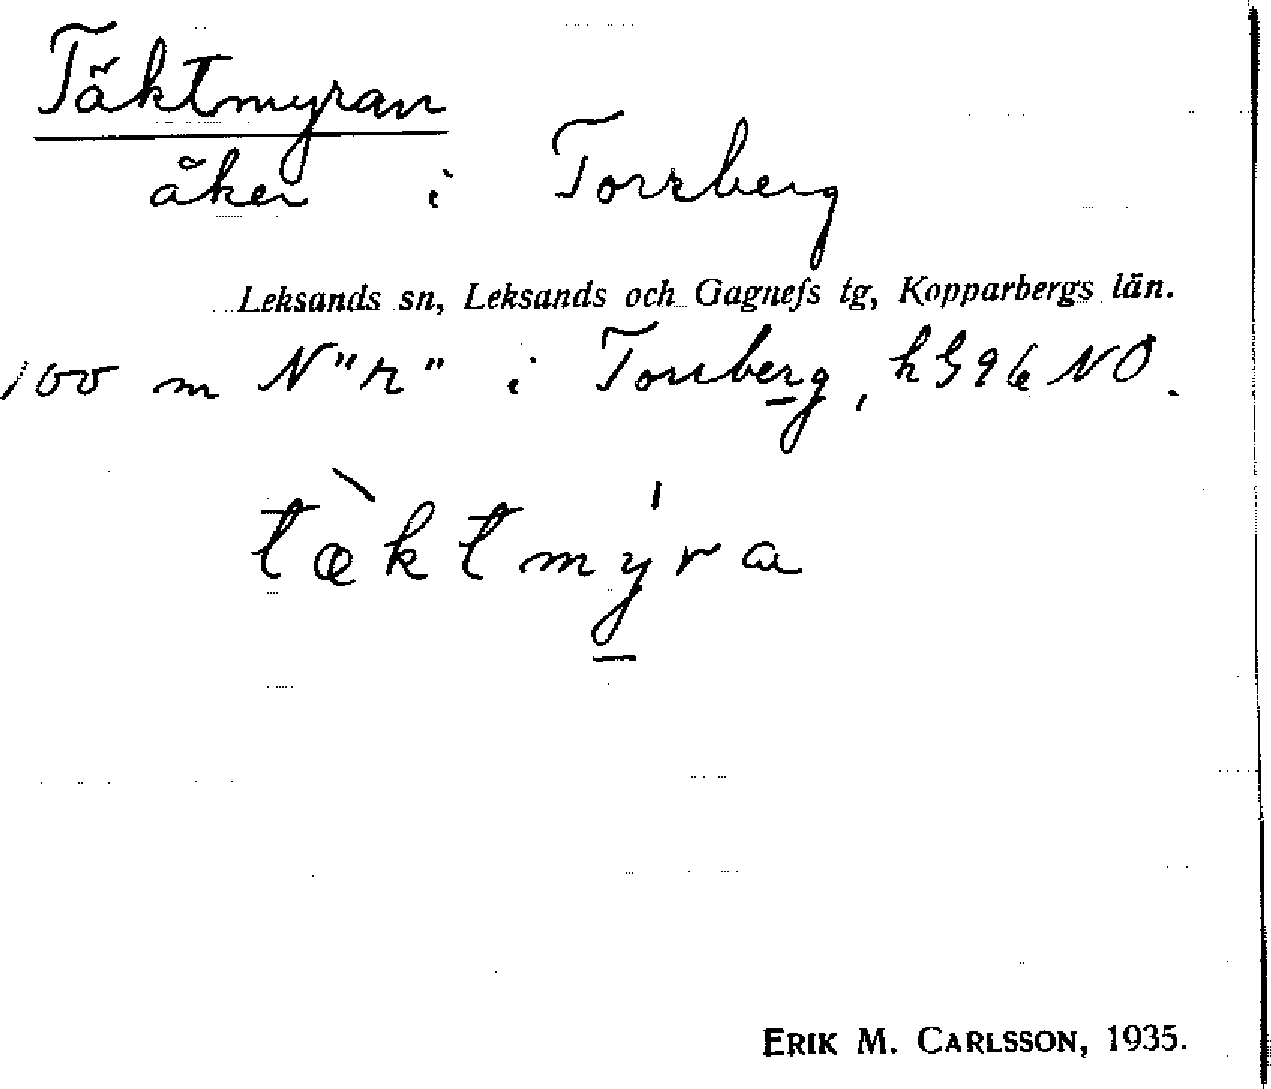 Täktmyran
åker i Torrberg
Leksands sn, Leksands och Gagnefs tg, Kopparbergs län.
100 m N "r" i Torrberg, h396 NO.
tæktmýra
ERIK M. CARLSSON, 1935.